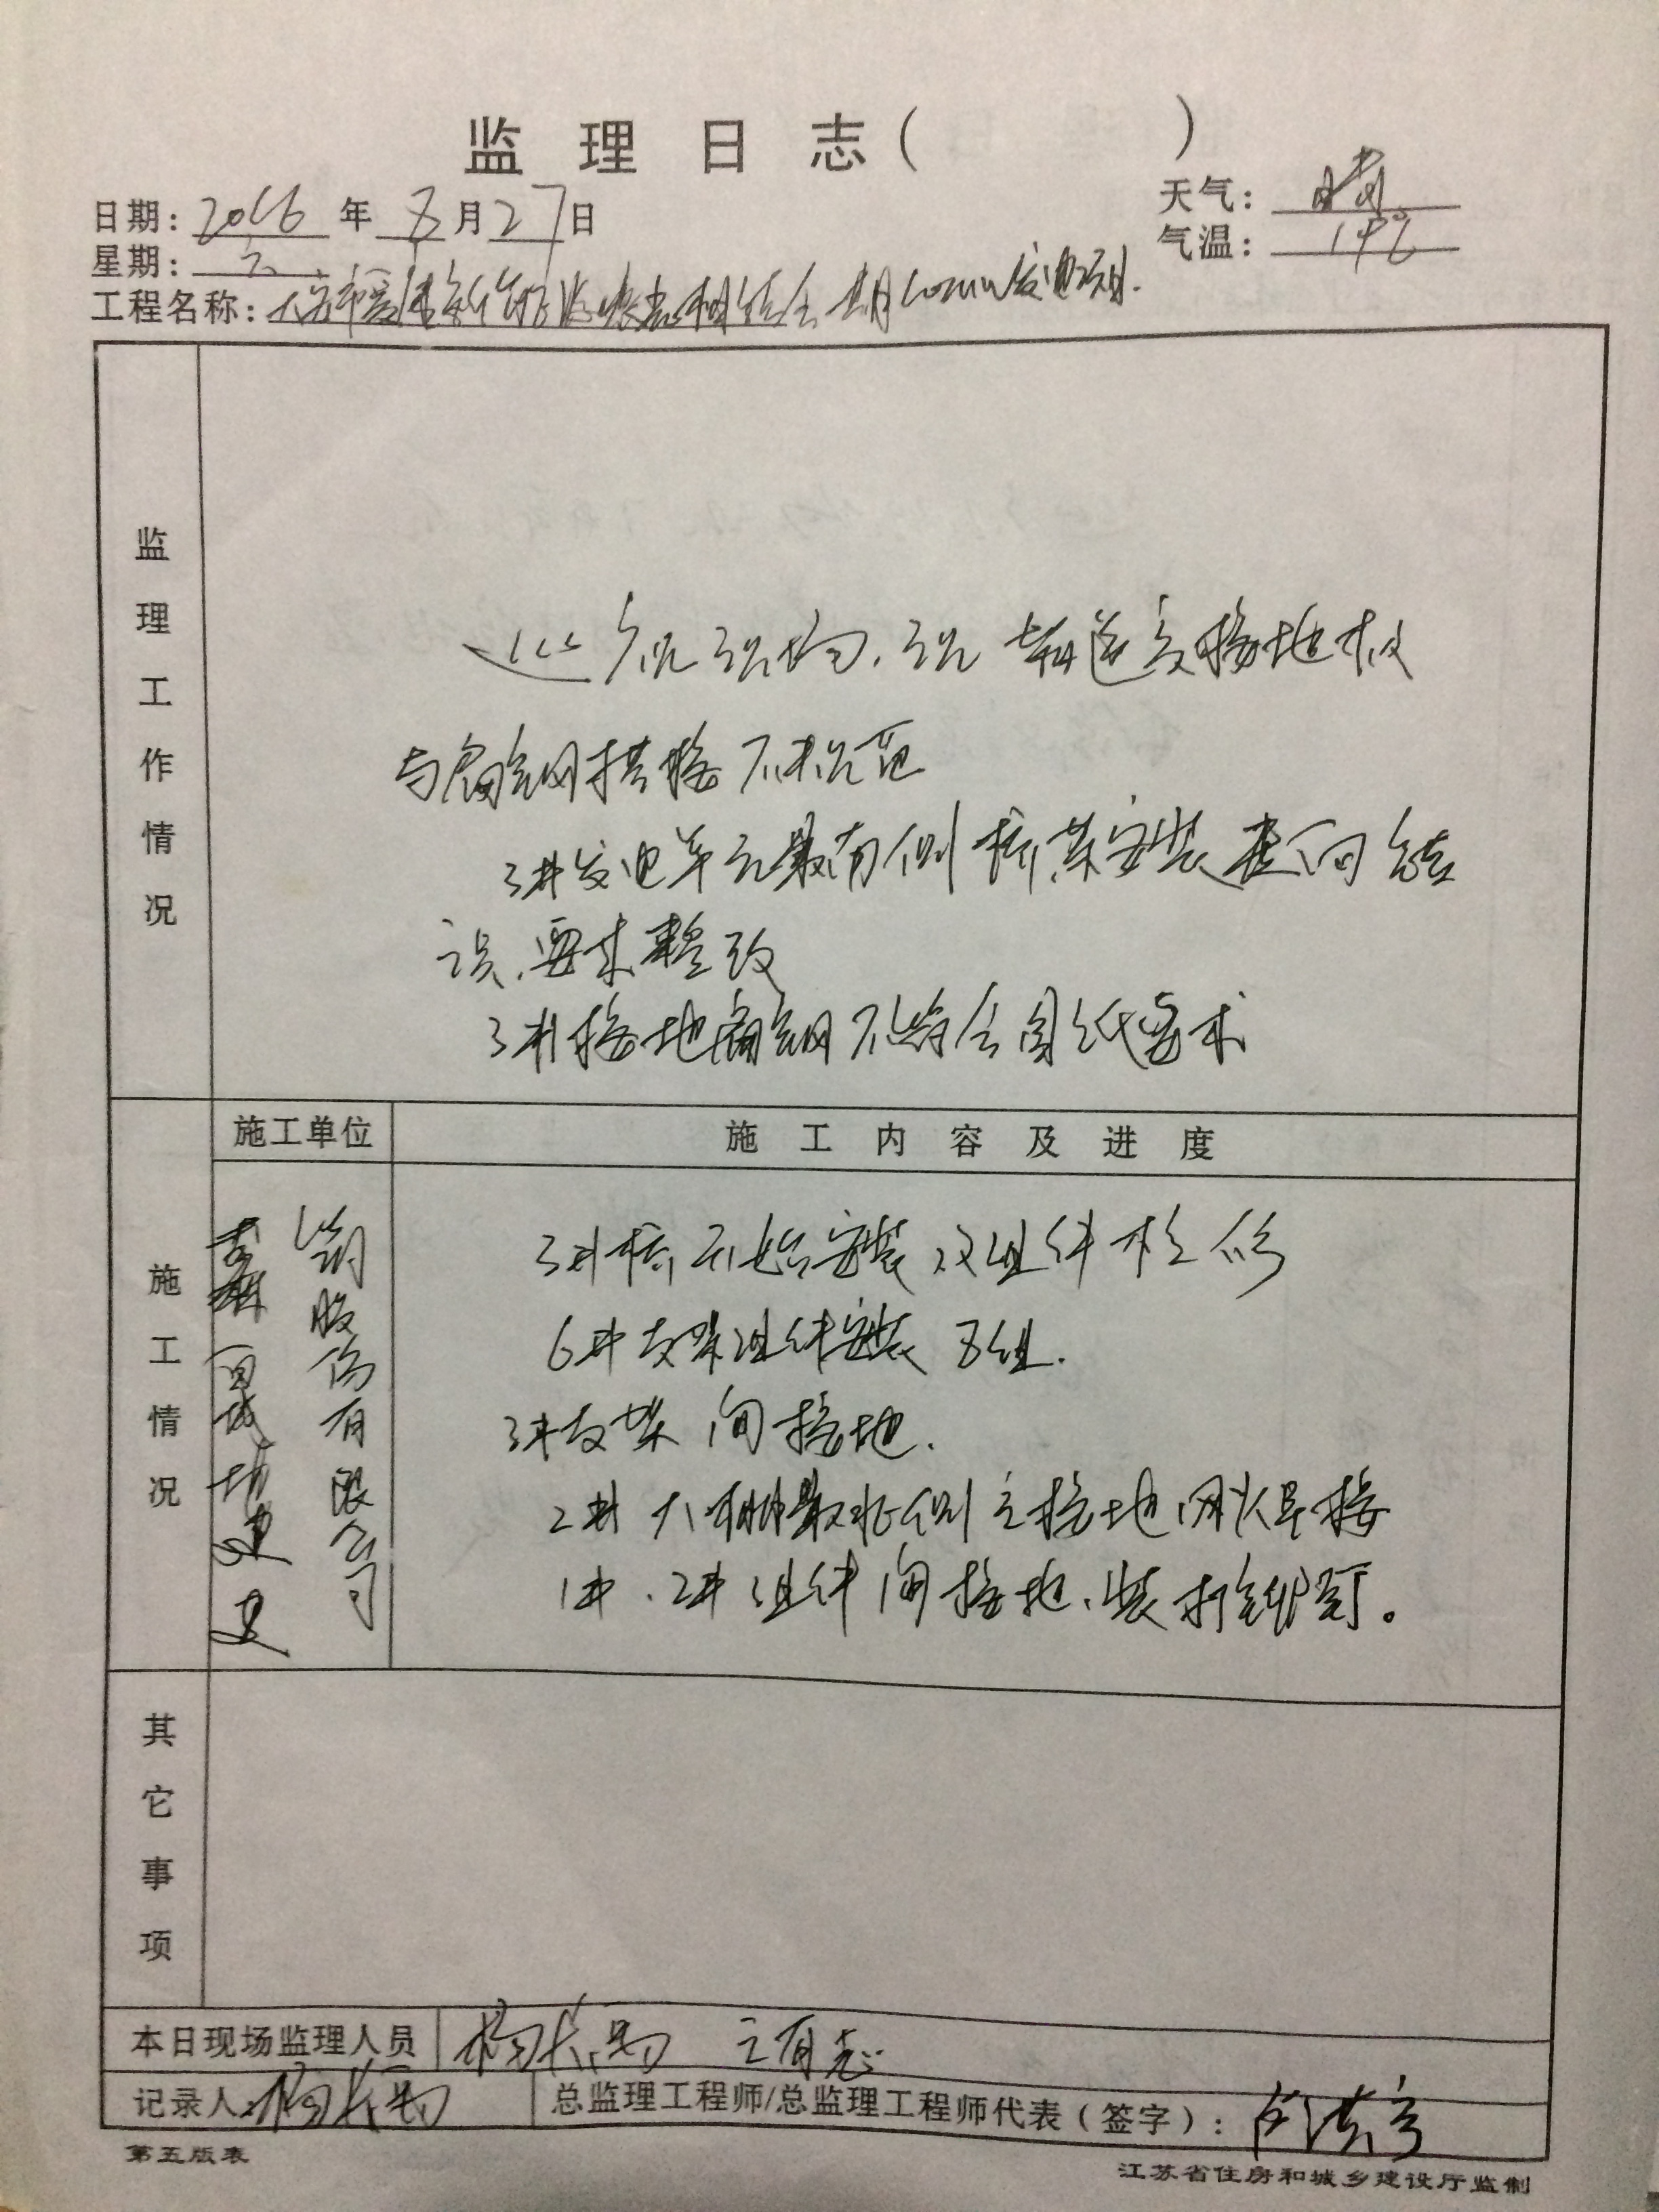 监 理 日 志 ( )
日期: 2016 年 8 月 27 日
天气: 晴
星期: 六
气温: 14℃
工程名称: 大安市 相结合 期 发电项目.
监理工作情况
巡视现场,现 接地极
与扁钢搭接不规范
3#发电单元最南侧桥架安装走向错
误,要求整改
3#接地扁钢不符合图纸要求
施工单位
施 工 内 容 及 进 度
施工情况
股份有限公司
3#桥开始安装及组件检修
6#支架组件安装 8组.
3#支架间接地.
2# 大棚最北侧主接地网焊接
1#.2#组件间接地、装打铆钉。
其它事项
本日现场监理人员
记录人:
总监理工程师/总监理工程师代表(签字):
第五版表
江苏省住房和城乡建设厅监制